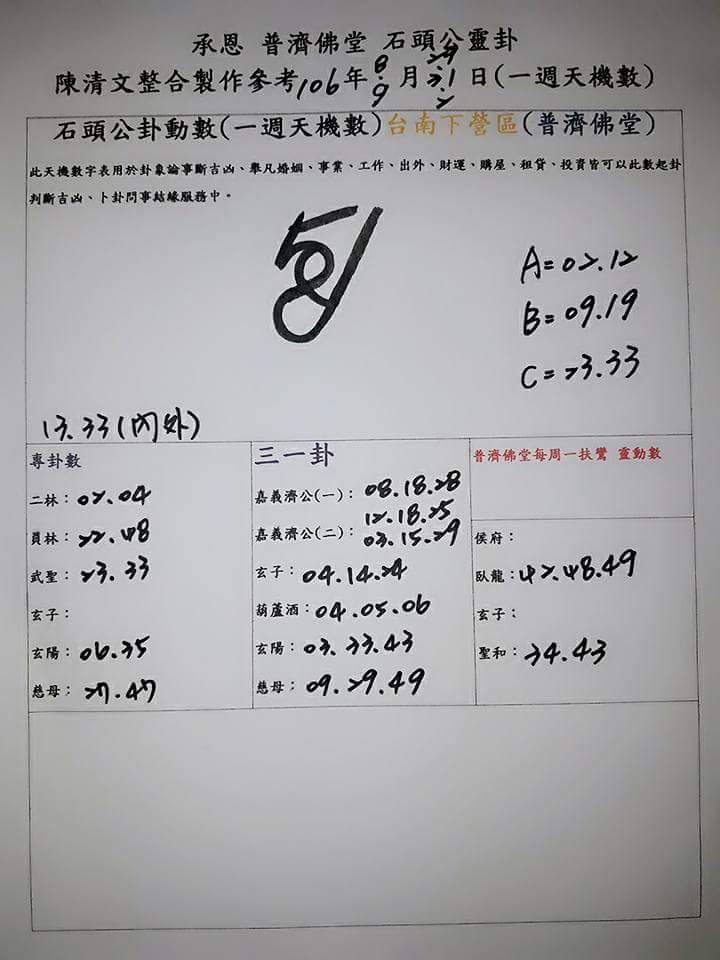 承恩 普濟佛堂 石頭公靈卦
陳清文整合製作參考106年8.9月29.31.2日(一週天機數)
石頭公卦動數(一週天機數)台南下營區(普濟佛堂)
此天機數字表用於卦象論事斷吉凶、舉凡婚姻、事業、工作、出外、財運、購屋、租貸、投資皆可以此數起卦
判斷吉凶、卜卦問事結緣服務中。
A=02.12
B=09.19
C=23.33
13.33(內外)
專卦數
二林：02.04
員林：22.48
武聖：23.33
玄子：
玄陽：06.35
慈母：27.47
三一卦
嘉義濟公(一)：08.18.28
12.18.25
嘉義濟公(二)：03.15.29
玄子：04.14.24
葫蘆酒：04.05.06
玄陽：03.33.43
慈母；09.29.49
普濟佛堂每周一扶鸞 靈動數
侯府：
臥龍：42.48.49
玄子：
聖和：34.43